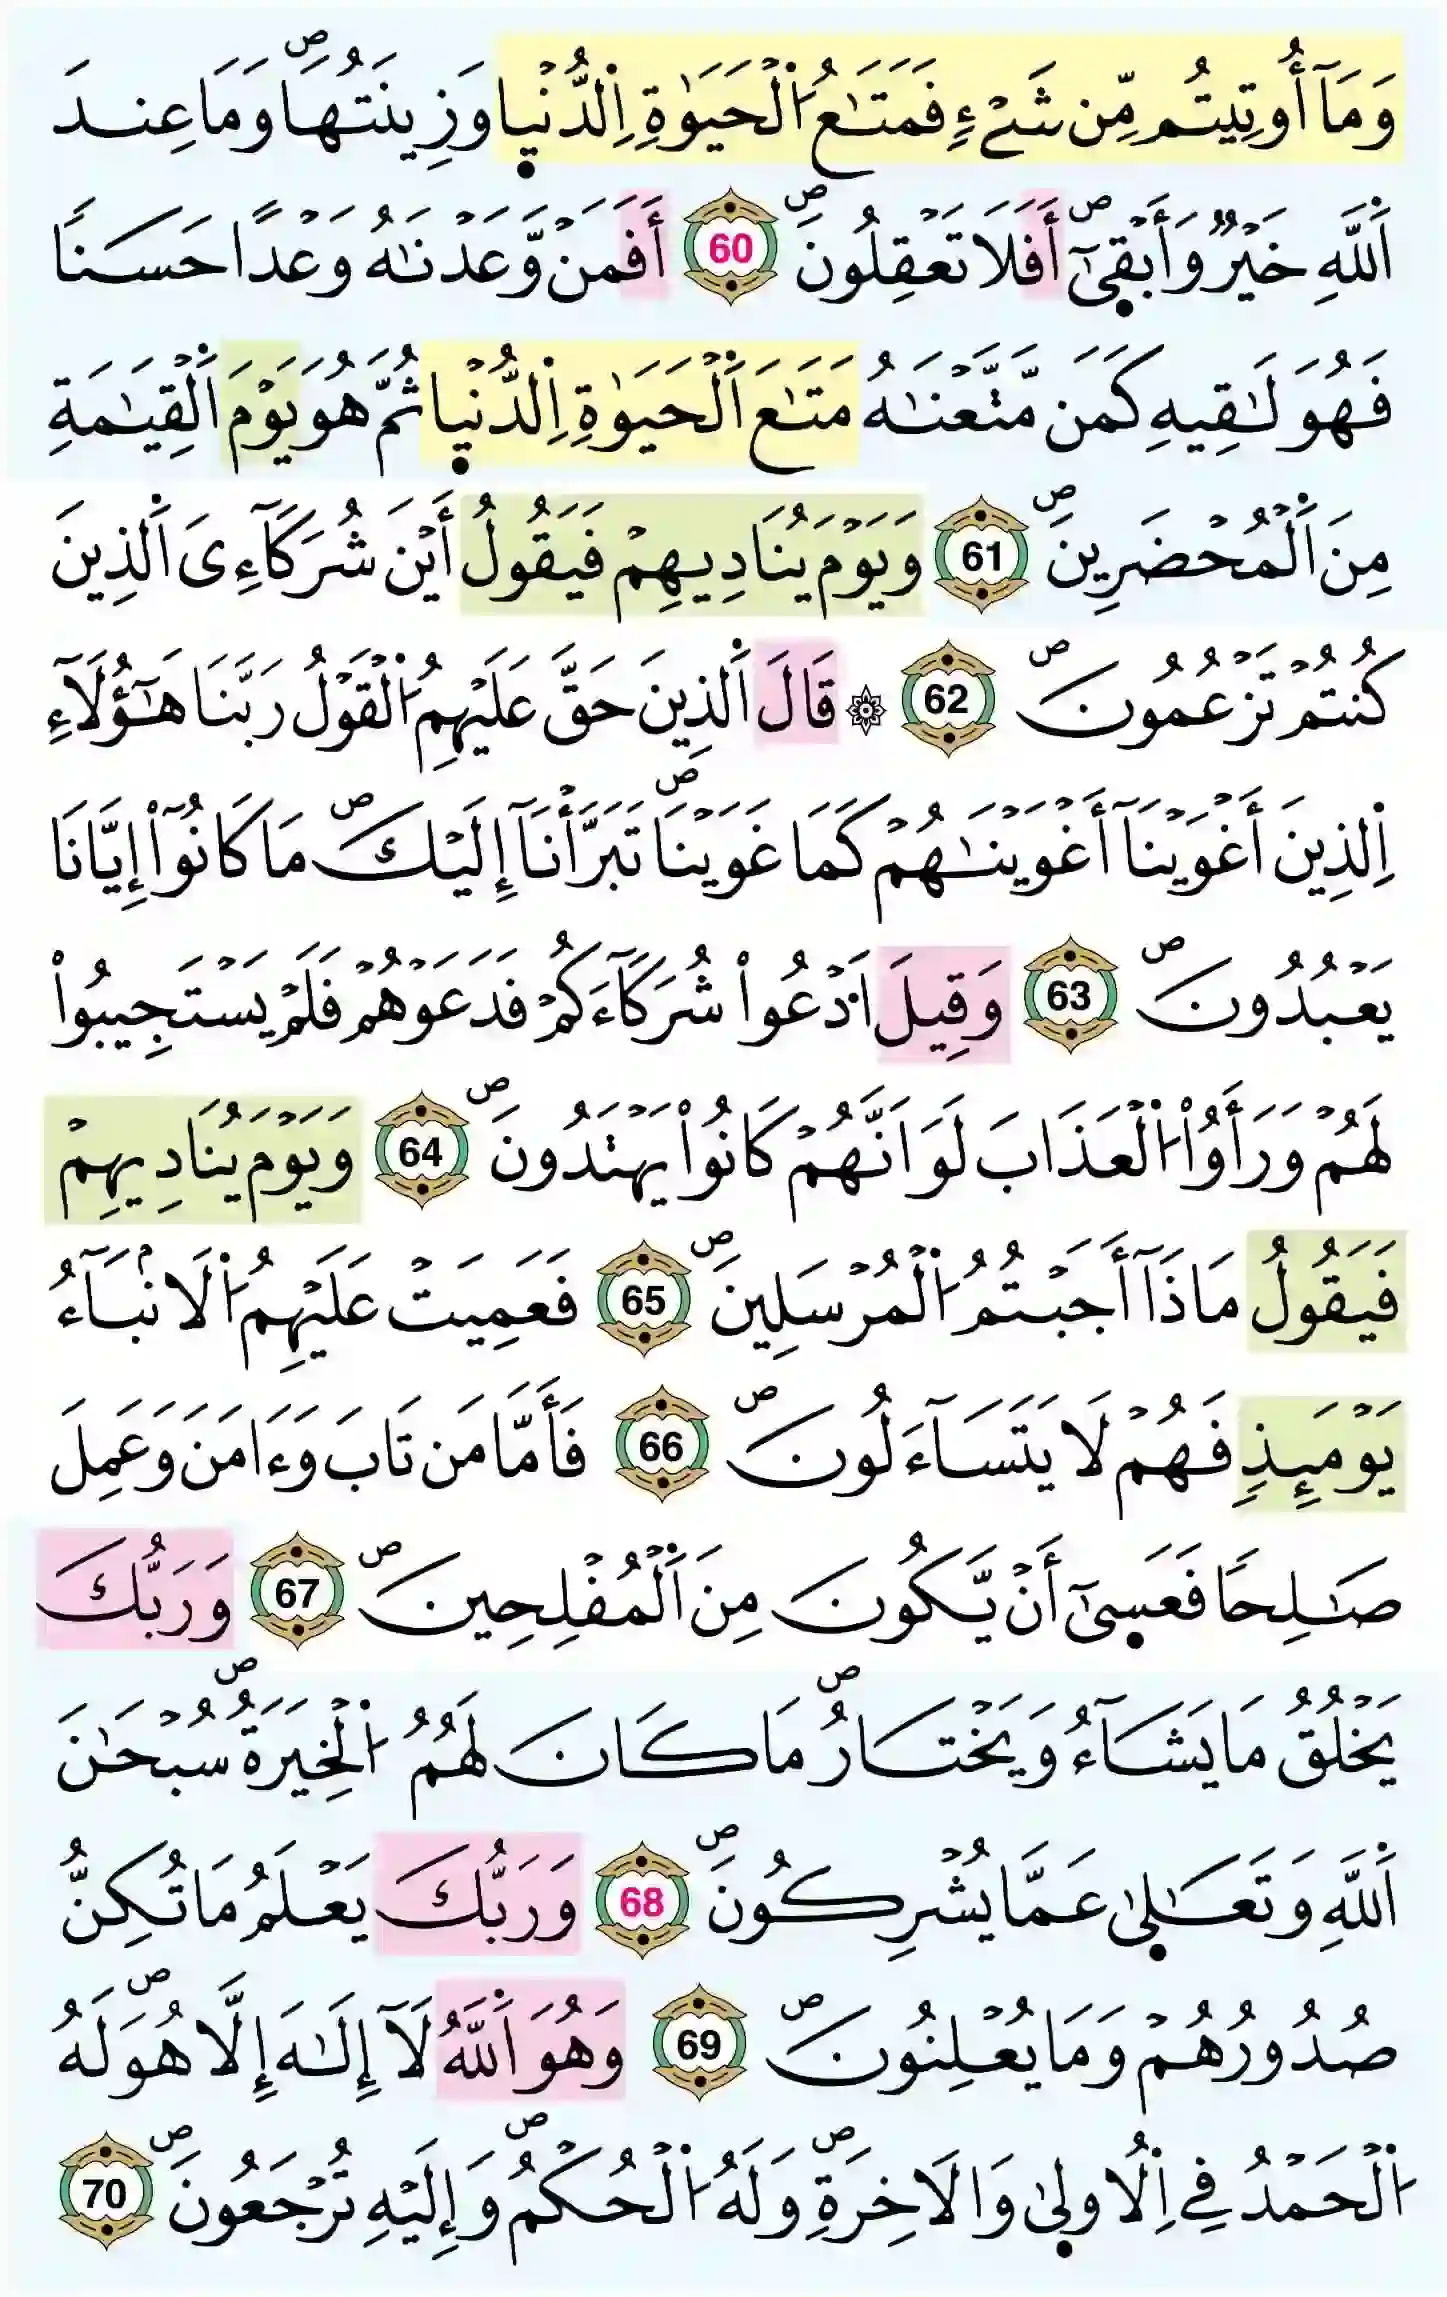 وَمَآ أُوتِيتُم مِّن شَےْءٖ فَمَتَٰعُ اُ۬لْحَيَوٰةِ اِ۬لدُّنْي۪ا وَزِينَتُهَاۖ وَمَا عِندَ
اَ۬للَّهِ خَيْرٞ وَأَبْق۪ىٰٓۖ أَفَلَا تَعْقِلُونَۖ 60 أَفَمَنْ وَّعَدْنَٰهُ وَعْدًا حَسَنٗا
فَهُوَ لَٰقِيهِ كَمَن مَّتَّعْنَٰهُ مَتَٰعَ اَ۬لْحَيَوٰةِ اِ۬لدُّنْي۪ا ثُمَّ هُوَ يَوْمَ اَ۬لْقِيَٰمَةِ
مِنَ اَ۬لْمُحْضَرِينَۖ 61 وَيَوْمَ يُنَادِيهِمْ فَيَقُولُ أَيْنَ شُرَكَآءِيَ اَ۬لذِينَ
كُنتُمْ تَزْعُمُونَۖ 62 ۞ قَالَ اَ۬لذِينَ حَقَّ عَلَيْهِمُ اُ۬لْقَوْلُ رَبَّنَا هَٰٓؤُلَآءِ
اِ۬لذِينَ أَغْوَيْنَآ أَغْوَيْنَٰهُمْ كَمَا غَوَيْنَاۖ تَبَرَّأْنَآ إِلَيْكَۖ مَا كَانُوٓاْ إِيَّانَا
يَعْبُدُونَۖ 63 وَقِيلَ اَ۟دْعُواْ شُرَكَآءَكُمْ فَدَعَوْهُمْ فَلَمْ يَسْتَجِيبُواْ
لَهُمْ وَرَأَوُاْ اُ۬لْعَذَابَ لَوَ اَنَّهُمْ كَانُواْ يَهْتَدُونَۖ 64 وَيَوْمَ يُنَادِيهِمْ
فَيَقُولُ مَاذَآ أَجَبْتُمُ اُ۬لْمُرْسَلِينَۖ 65 فَعَمِيَتْ عَلَيْهِمُ اُ۬لَانۢبَآءُ
يَوْمَئِذٖ فَهُمْ لَا يَتَسَآءَلُونَۖ 66 فَأَمَّا مَن تَابَ وَءَامَنَ وَعَمِلَ
صَٰلِحٗا فَعَس۪ىٰٓ أَنْ يَّكُونَ مِنَ اَ۬لْمُفْلِحِينَۖ 67 وَرَبُّكَ
يَخْلُقُ مَا يَشَآءُ وَيَخْتَارُۖ مَا كَانَ لَهُمُ اُ۬لْخِيَرَةُۖ سُبْحَٰنَ
اَ۬للَّهِ وَتَعَٰل۪ىٰ عَمَّا يُشْرِكُونَۖ 68 وَرَبُّكَ يَعْلَمُ مَا تُكِنُّ
صُدُورُهُمْ وَمَا يُعْلِنُونَۖ 69 وَهُوَ اَ۬للَّهُ لَآ إِلَٰهَ إِلَّا هُوَۖ لَهُ
اُ۬لْحَمْدُ فِے اِ۬لُاول۪ىٰ وَالَاخِرَةِۖ وَلَهُ اُ۬لْحُكْمُۖ وَإِلَيْهِ تُرْجَعُونَۖ 70